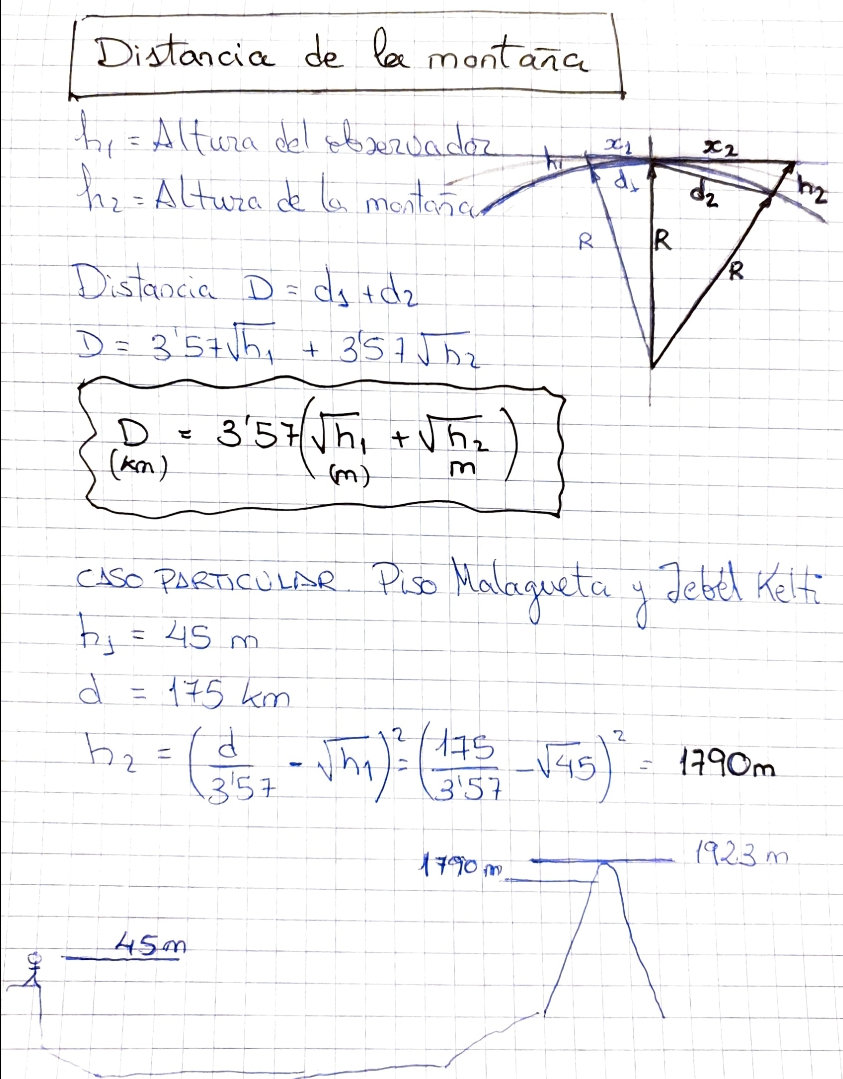 Distancia de la montaña
h₁ = Altura del observador
h₂ = Altura de la montaña
h₁ x₁ x₂
d₁ d₂ h₂
R R R
Distancia D = d₁ + d₂
D = 3'57√h₁ + 3'57√h₂
D = 3'57(√h₁ + √h₂)
(km) (m) m
CASO PARTICULAR. Piso Malagueta y Jebel Kelti
h₁ = 45 m
d = 175 km
h₂ = (d/3'57 - √h₁)² = (175/3'57 - √45)² = 1790m
1790 m 1923 m
45m